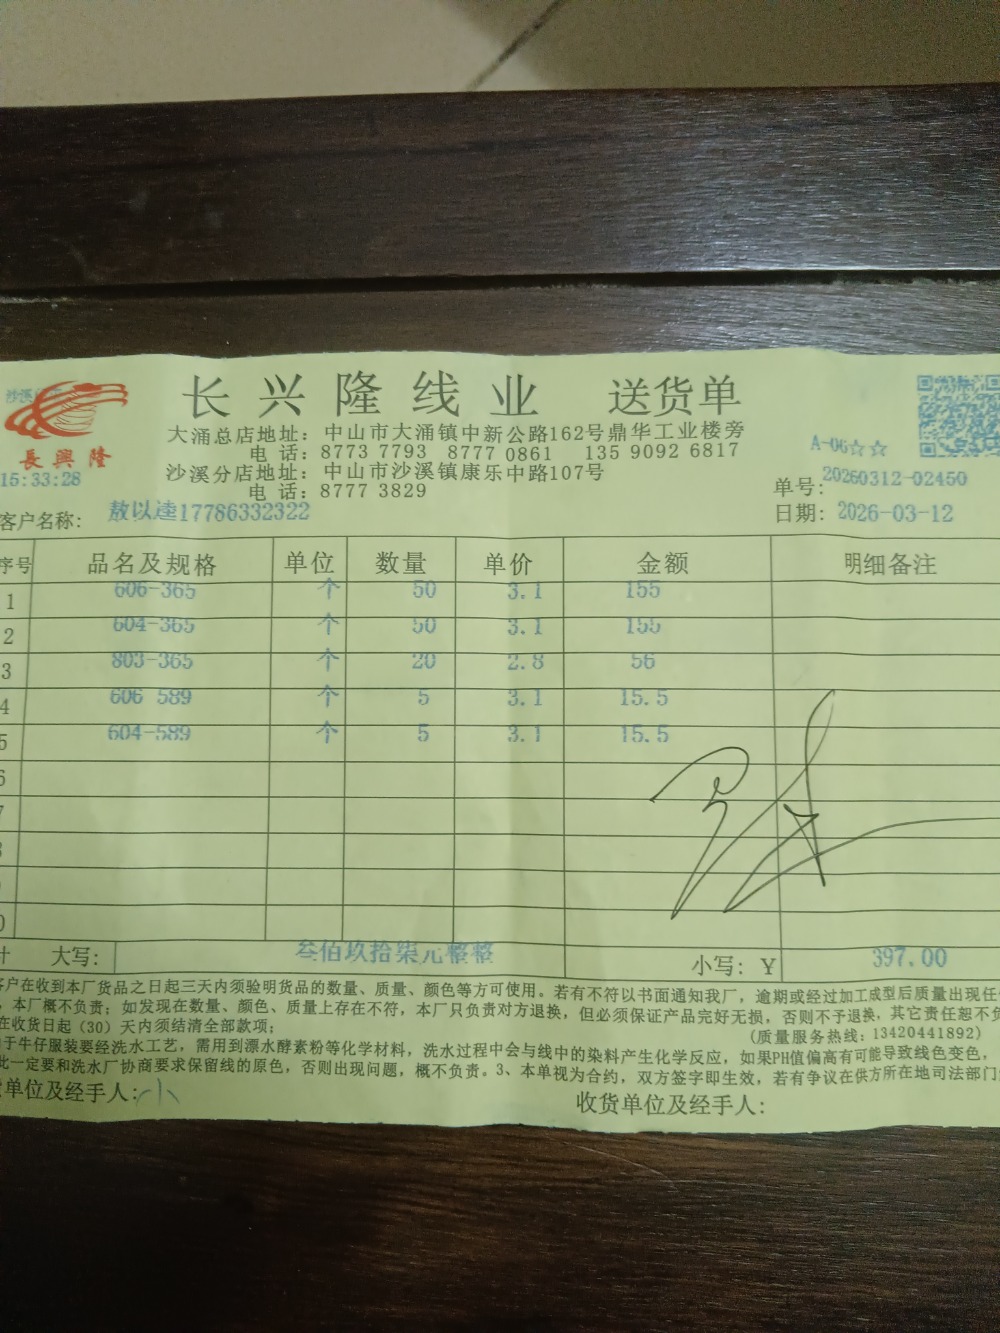 长兴隆线业 送货单
大涌总店地址：中山市大涌镇中新公路162号鼎华工业楼旁
電興隆
电 话：8773 7793 8777 0861 135 9092 6817
A-06☆☆
沙溪分店地址：中山市沙溪镇康乐中路107号
15:33:28
单号：20260312-02450
电 话：8777 3829
客户名称：敖以逵17786332322
日期：2026-03-12
序号 品名及规格 单位 数量 单价 金额 明细备注
1 606-365 个 50 3.1 155
2 604-365 个 50 3.1 155
3 803-365 个 20 2.8 56
4 606 589 个 5 3.1 15.5
5 604-589 个 5 3.1 15.5
6
计 大写： 叁佰玖拾柒元整整 小写：￥ 397.00
客户在收到本厂货品之日起三天内须验明货品的数量、质量、颜色等方可使用。若有不符以书面通知我厂，逾期或经过加工成型后质量出现任
，本厂概不负责；如发现在数量、颜色、质量上存在不符，本厂只负责对方退换，但必须保证产品完好无损，否则不予退换，其它责任恕不
在收货日起（30）天内须结清全部款项；
（质量服务热线：13420441892）
于牛仔服装要经洗水工艺，需用到漂水酵素粉等化学材料，洗水过程中会与线中的染料产生化学反应，如果PH值偏高有可能导致线色变色，
此一定要和洗水厂协商要求保留线的原色，否则出现问题，概不负责。3、本单视为合约，双方签字即生效，若有争议在供方所在地司法部门
单位及经手人：小
收货单位及经手人：